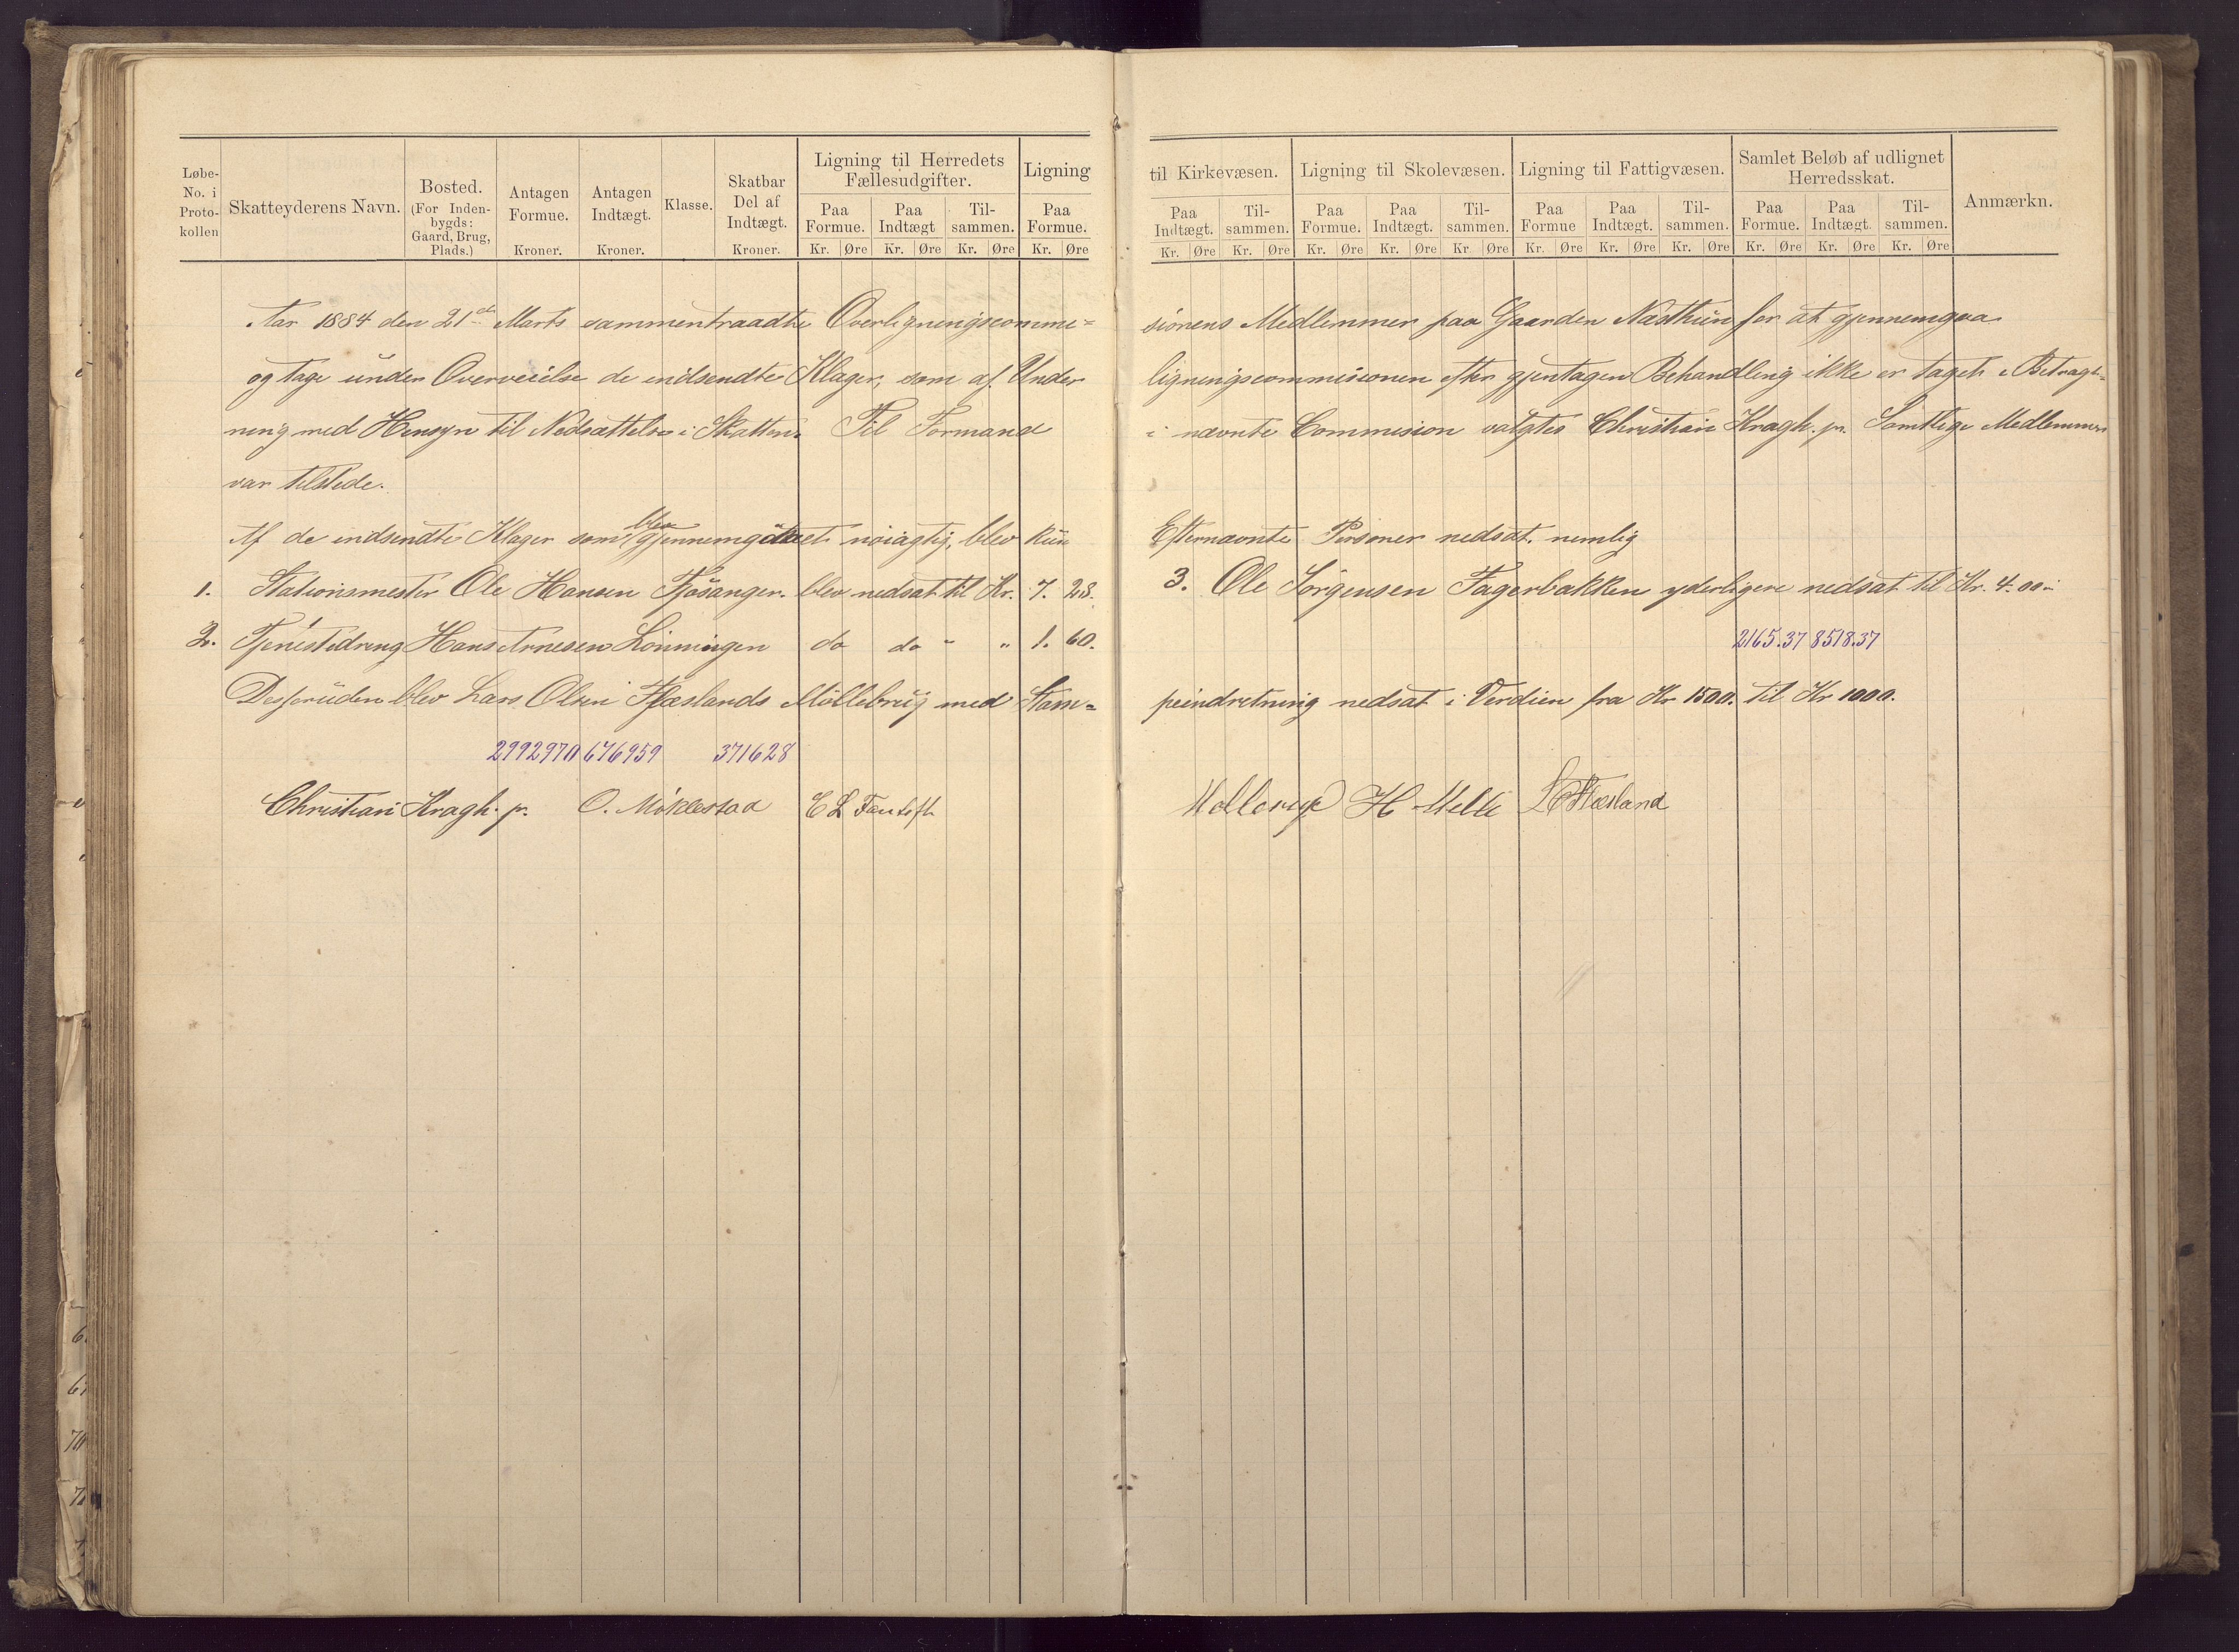 Løbe-No. i Proto-kollen
Skatteyderens Navn.
Bosted. (For Inden-bygds: Gaard, Brug, Plads.)
Antagen Formue. Kroner.
Antagen Indtægt. Kroner.
Klasse.
Skatbar Del af Indtægt. Kroner.
Ligning til Herredets Fællesudgifter.
Paa Formue. Paa Indtægt Til-sammen.
Kr. Øre Kr. Øre Kr. Øre
Ligning
Paa Formue.
Kr. Øre
til Kirkevæsen.
Paa Indtægt. Til-sammen.
Kr. Øre Kr. Øre
Ligning til Skolevæsen.
Paa Formue. Paa Indtægt. Til-sammen.
Kr. Øre Kr. Øre Kr. Øre
Ligning til Fattigvæsen.
Paa Formue Paa Indtægt. Til-sammen.
Kr. Øre Kr. Øre Kr. Øre
Samlet Beløb af udlignet Herredsskat.
Paa Formue. Paa Indtægt. Til-sammen.
Kr. Øre Kr. Øre Kr. Øre
Anmærkn.
Aar 1884 den 21de Marts sammentraadte Overligningscommi= sionens Medlemmer paa Gaarden Næsthun for at gjennemgaa
og tage under Overveielse de indsendte Klager, som af Under ligningscommisionen efter gjentagen Behandling ikke er taget i Betragt=
ning med Hensyn til Nedsættelse i Skatten. Til Formand i nævnte Commision valgtes Christian Kragh. jr. Samtlige Medlemmer
var tilstede.
Af de indsendte Klager som blev gjennemgaaet nøiagtig, blev kun Efternævnte Personer nedsat. nemlig
1. Stationsmester Ole Hansen Fjøsanger. blev nedsat til Kr. 7. 28.
3. Ole Jørgensen Fagerbakken yderligere nedsat til Kr. 4. 00
2. Tjenestedreng Hans Arnesen Lønningen do do " " 1. 60.
2165.37 8518.37
Desforuden blev Lars Olsen Flæslands Møllebrug med Stam= peindretning nedsat i Verdien fra Kr 1500. til Kr 1000.
2992970 676959 371628
Christian Kragh. jr. O. Møklestad E L Fantoft
Mollerup H Melle L O Flæsland